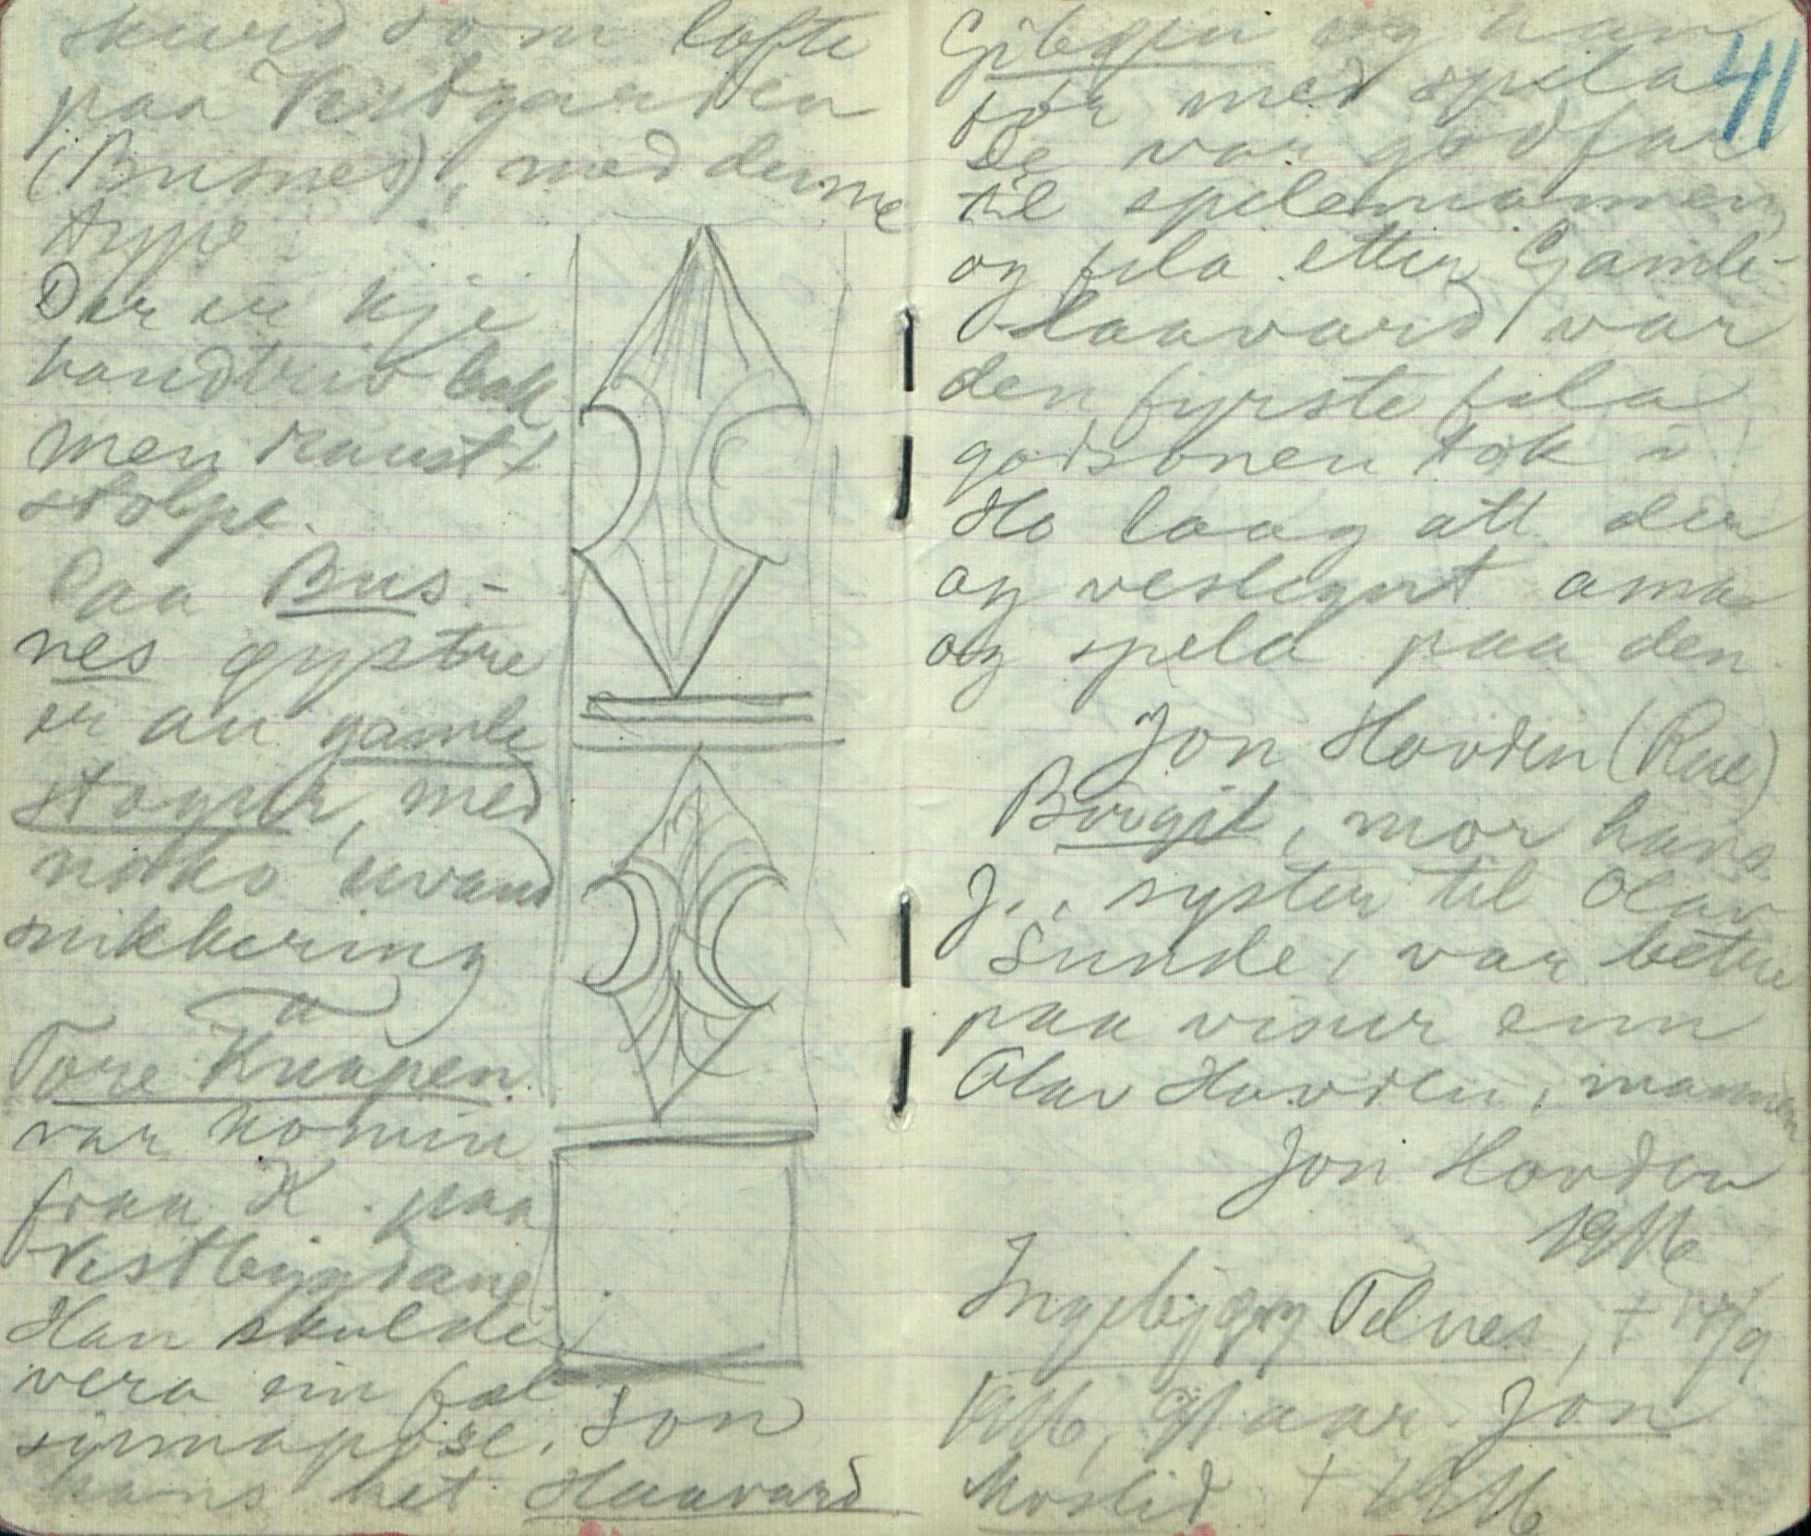 skurd som lofte
paa Vestgarden
(Busnes), med denne
type:
Der er kje
vandbrid bak
men raust +
stolpe.
Paa Bus-
nes gystre
er au gamle
stogur, med
noko uvand
snikkering
Tore Knapen
var komin
fraa K. paa
Vestbygdane
Han skulde
vera ein fæl
synnapose. Son
hans het Haavard
41
Gibøen og han
for med spela
De var godfar
til spelemannen
og fela etter Gamle-
Haavard var
den fyrste fela
godsonen tok i
Ho laag att der
og veslegut ama
og spela paa den.
Jon Hovden (Rue)
Birgit, mor hans
J., syster til Olav
Sunde, var betre
paa viser enn
Olav Hovden, mannen
Jon Hovden
1916
Ingebjørg Telnes, +
1916, 91 aar. Jon
Moslid + 1916